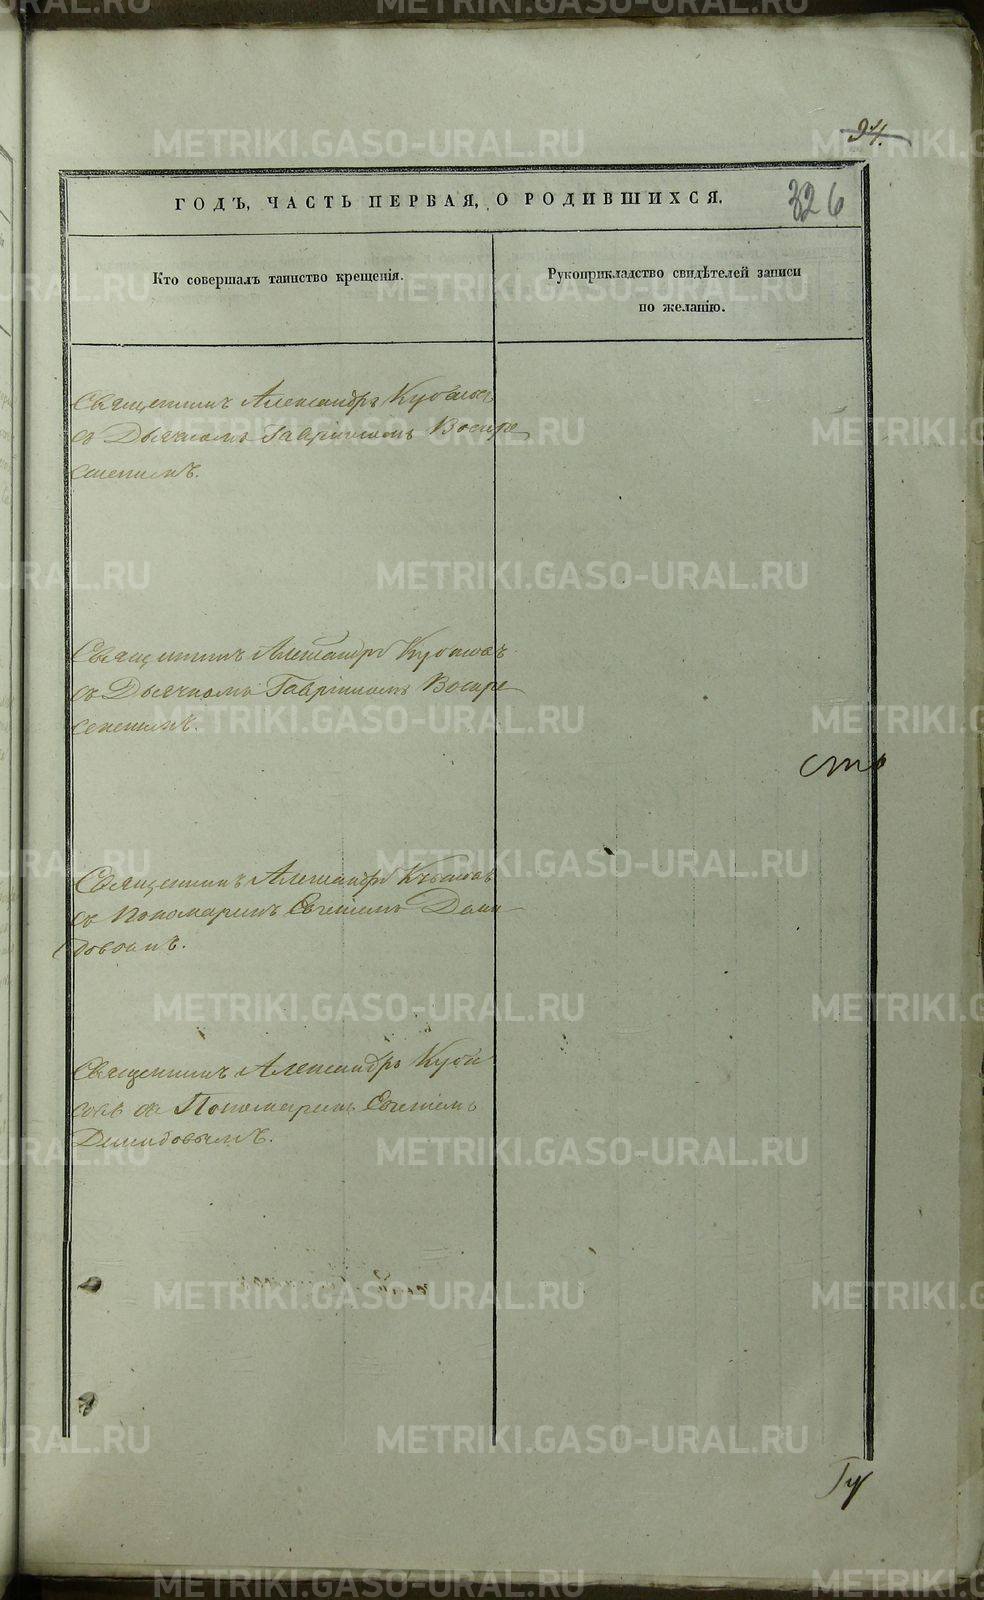 94.
ГОДЪ, ЧАСТЬ ПЕРВАЯ, О РОДИВШИХСЯ.
326
Кто совершалъ таинство крещенія.
Рукоприкладство свидѣтелей записи
по желанію.
Священникъ Александръ
съ Дьячкомъ Гавріиломъ Воскре
сенскимъ.
Священникъ Александръ
съ Дьячкомъ Гавріиломъ Воскре
сенскимъ.
сто
Священникъ Александръ
съ Пономаремъ Евгеніемъ Деми
довымъ.
Священникъ Александръ
съ Пономаремъ Евгеніемъ
Демидовымъ.
METRIKI.GASO-URAL.RU